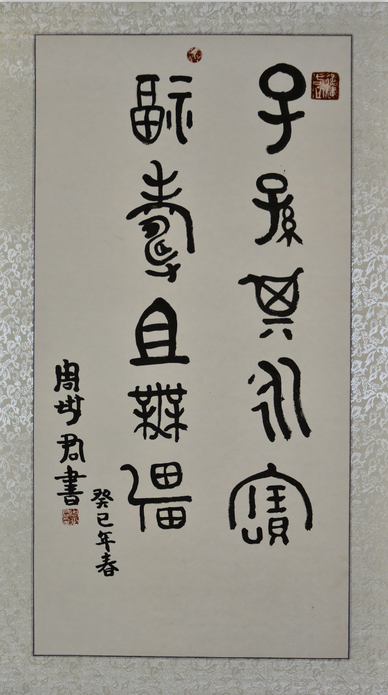 子孫其永寶
福壽且無疆
癸巳年春
周君書